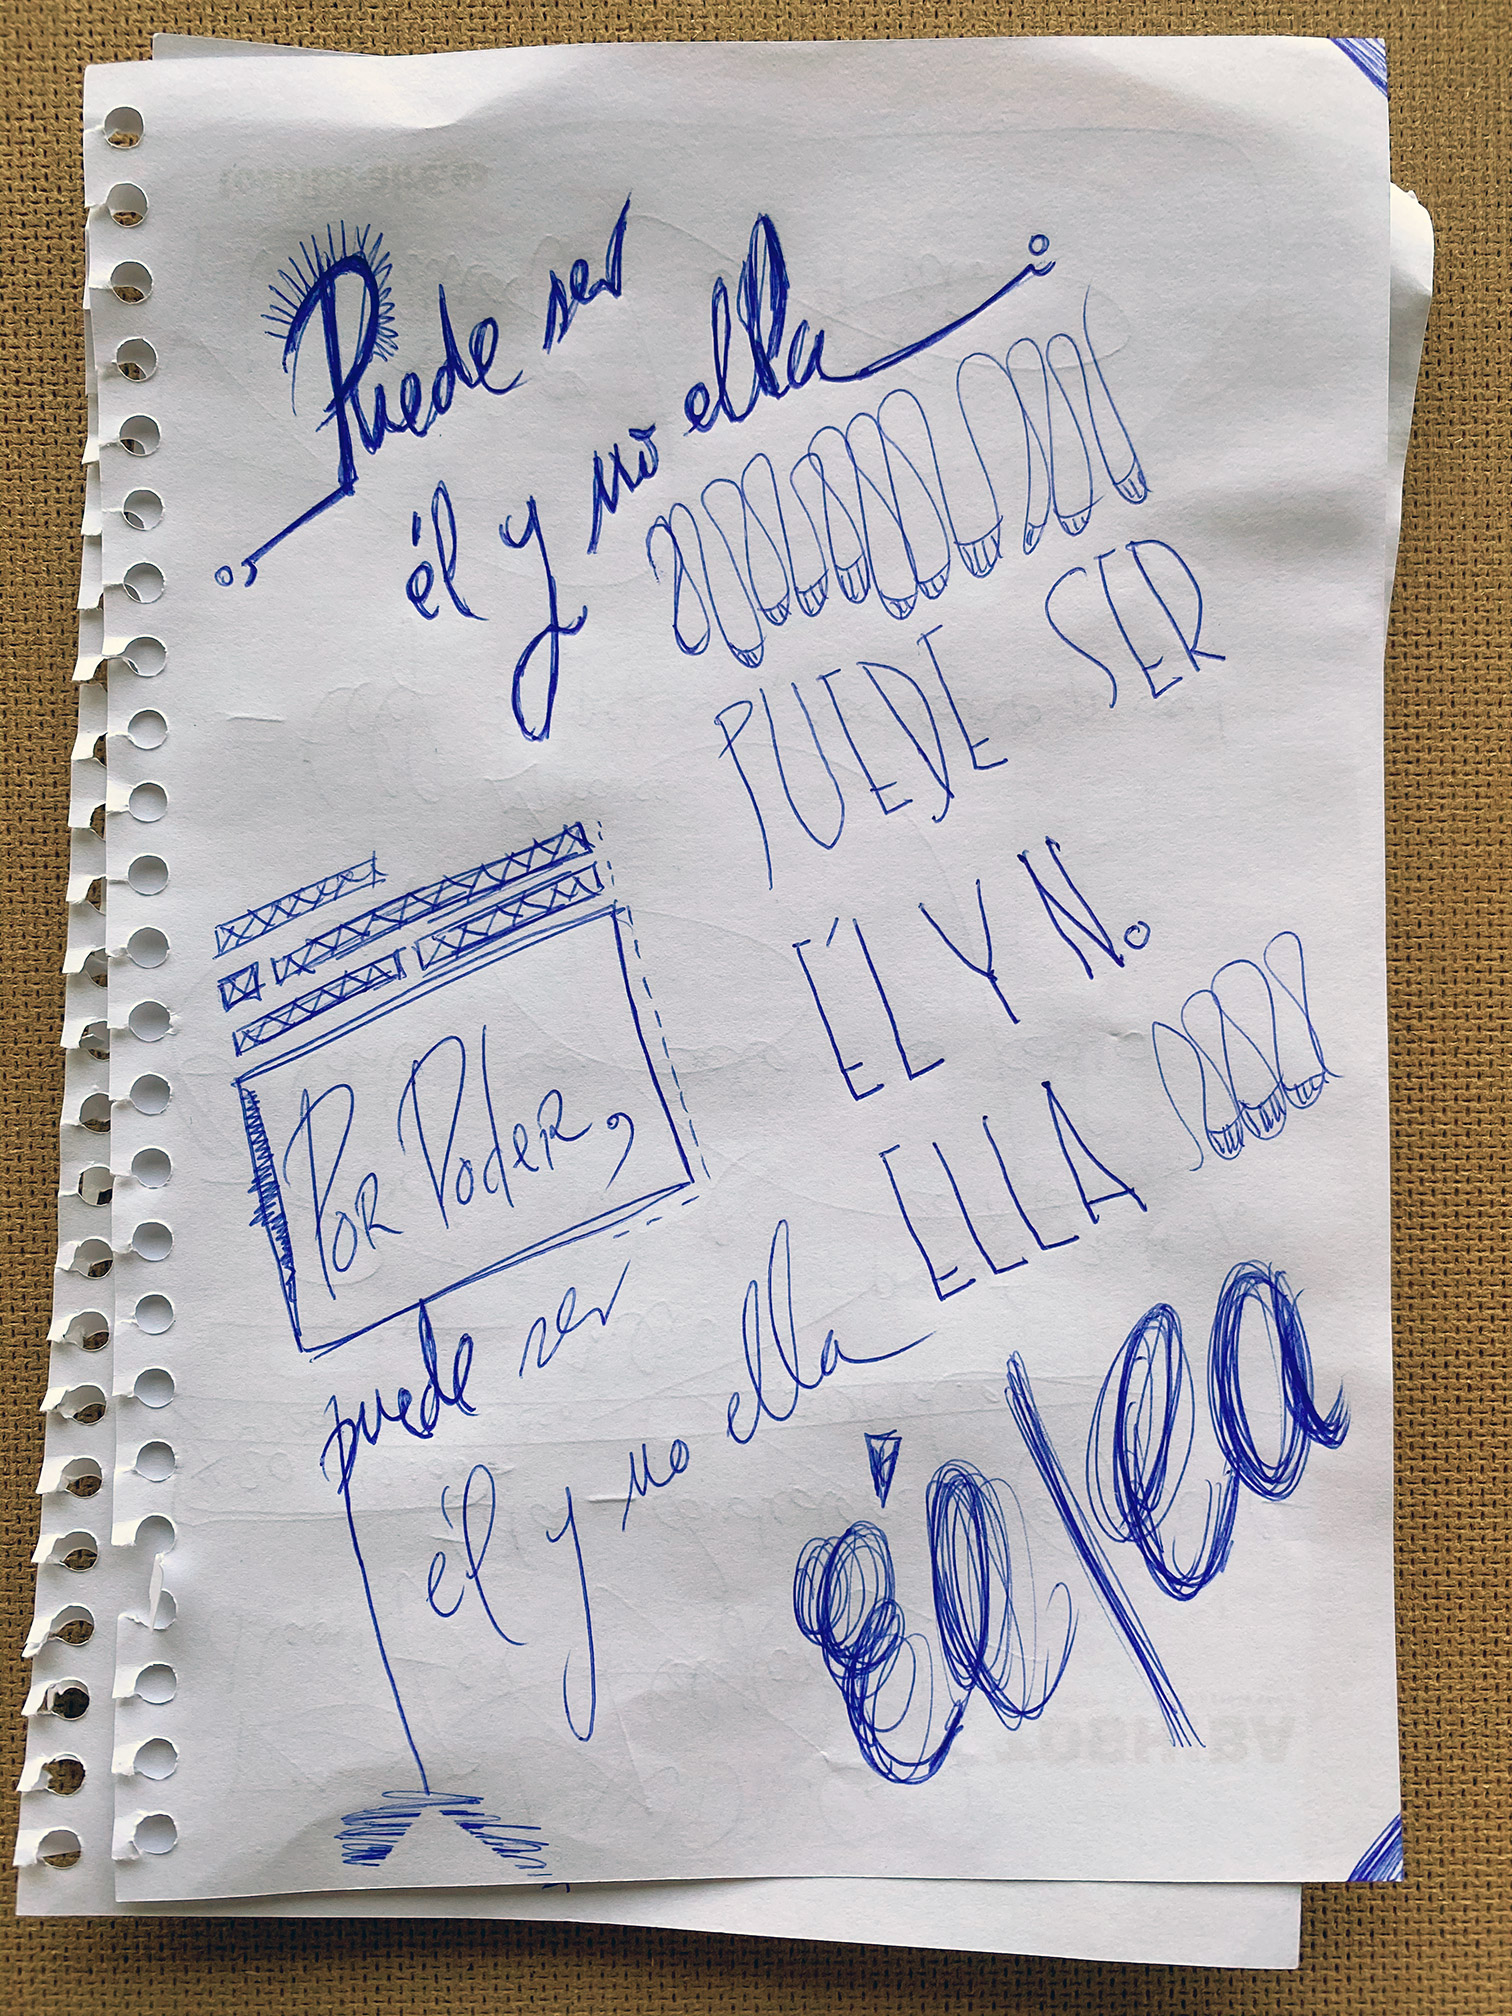 Puede ser
él y no ella
PUEDE SER
ÉL Y No
ELLA
POR PODER,
puede ser
él y no ella
él/ea